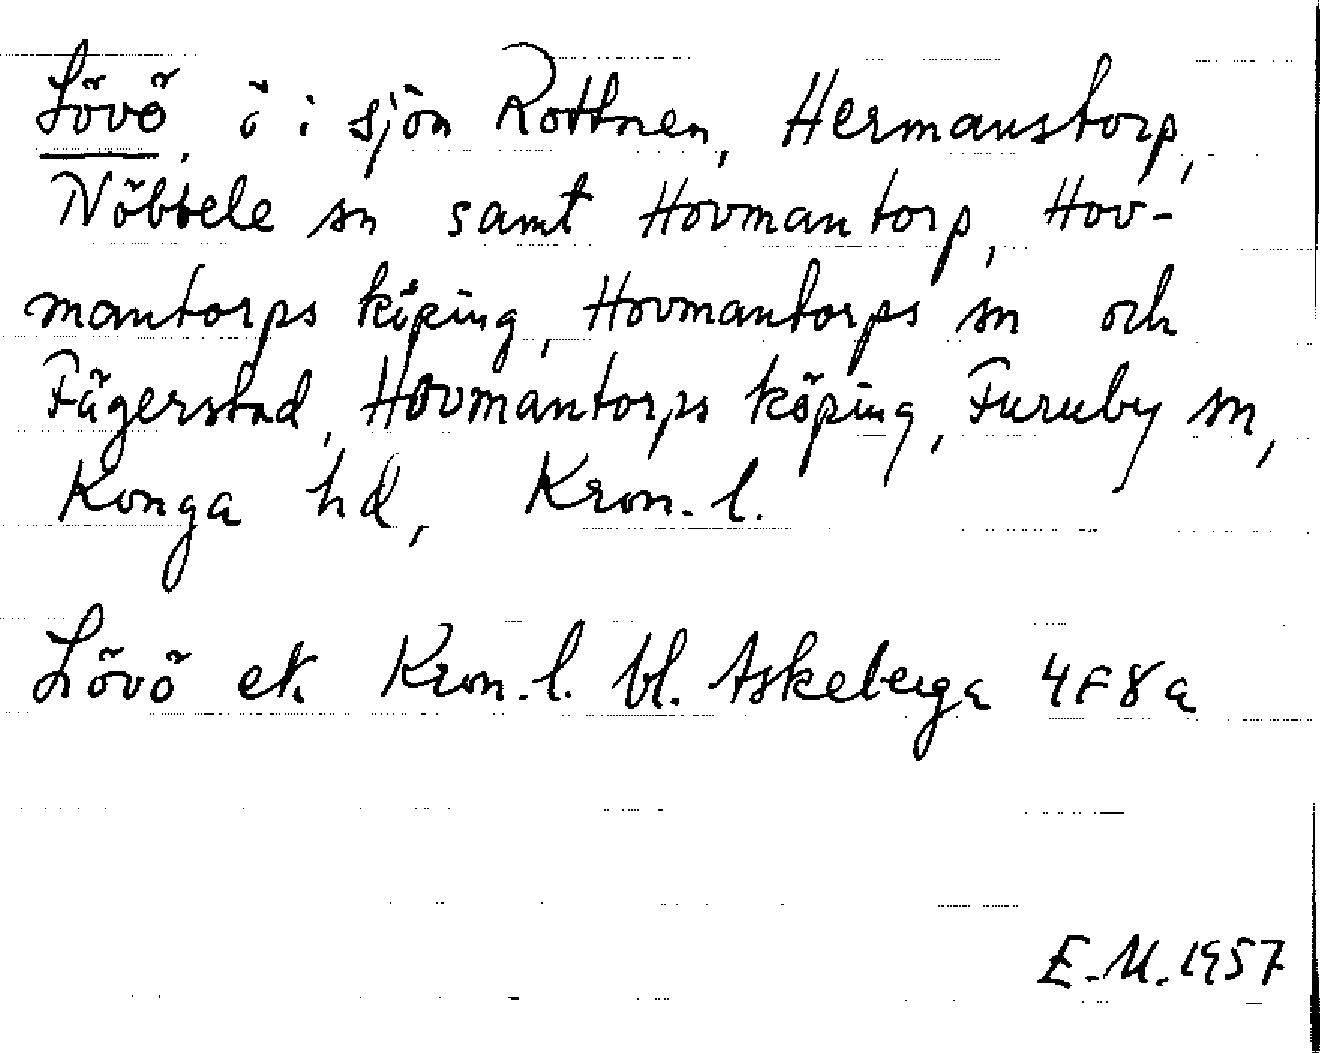 Lövö, ö i sjön Rottnen, Hermanstorp,
Nöbbele sn samt Hovmantorp, Hov-
mantorps köping, Hovmantorps sn och
Fägerstad, Hovmantorps köping, Furuby sn,
Konga hd, Kron. l.
Lövö ek. Kron. l. bl. Askeberga 4F8a
E. M. 1957